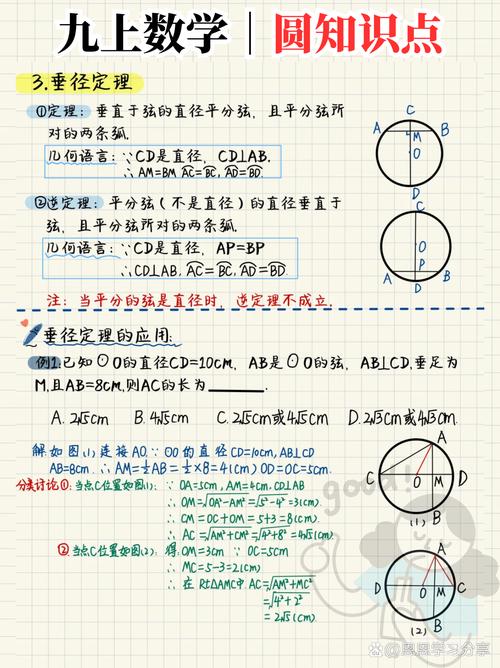 九上数学|圆知识点
3.垂径定理
①定理：垂直于弦的直径平分弦，且平分弦所
对的两条弧.
几何语言：∵CD是直径，CD⊥AB.
∴AM=BM A͡C=B͡C, A͡D=B͡D.
C
A
B
M
O
D
②逆定理：平分弦(不是直径)的直径垂直于
弦，且平分弦所对的两条弧.
几何语言：∵CD是直径，AP=BP
∴CD⊥AB, A͡C=B͡C, A͡D=B͡D.
C
O
P
A
B
D
注：当平分的弦是直径时，逆定理不成立.
垂径定理的应用:
例1.已知⊙O的直径CD=10cm，AB是⊙O的弦，AB⊥CD,垂足为
M,且AB=8cm,则AC的长为________.
A. 2√5cm B. 4√5cm C. 2√5cm或4√5cm D. 2√3cm或4√3cm.
解.如图(1)连接AO.∵⊙O的直径CD=10cm, AB⊥CD
AB=8cm. ∴AM=½AB=½×8=4(cm) OD=OC=5cm.
分类讨论①:当点C位置如图(1): ∵OA=5cm, AM=4cm. CD⊥AB
∴OM=√OA²-AM²=√5²-4²=3(cm).
∴CM=OC+OM=5+3=8(cm)
∴AC=√AM²+CM²=√4²+8²=4√5(cm)
②当点C位置如图(2): 得.OM=3cm ∵OC=5cm
∴MC=5-3=2(cm)
∴在Rt△AMC中.AC=√AM²+MC²
=√4²+2²
=2√5(cm)
A
C
O
M
D
B
(1)
A
D
O
M
C
B
(2)
good!
@恩恩学习分享